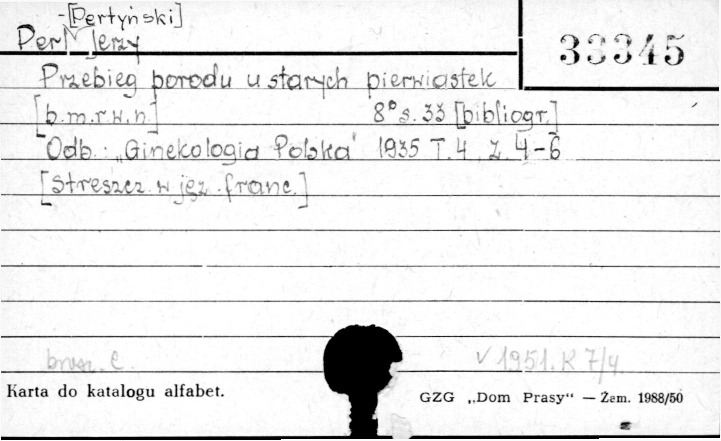 -[Pertyński]
Perl Jerzy
33345
Przebieg porodu u starych pierwiastek
[b.m.r.w.n.] 8° s. 33 [bibliogr.]
Odb.: „Ginekologia Polska" 1935 T. 4 z. 4-6
[streszcz. w jęz. franc.]
brosz. C.
V 1951. K 7/4.
Karta do katalogu alfabet.
GZG „Dom Prasy“ — Żem. 1988/50